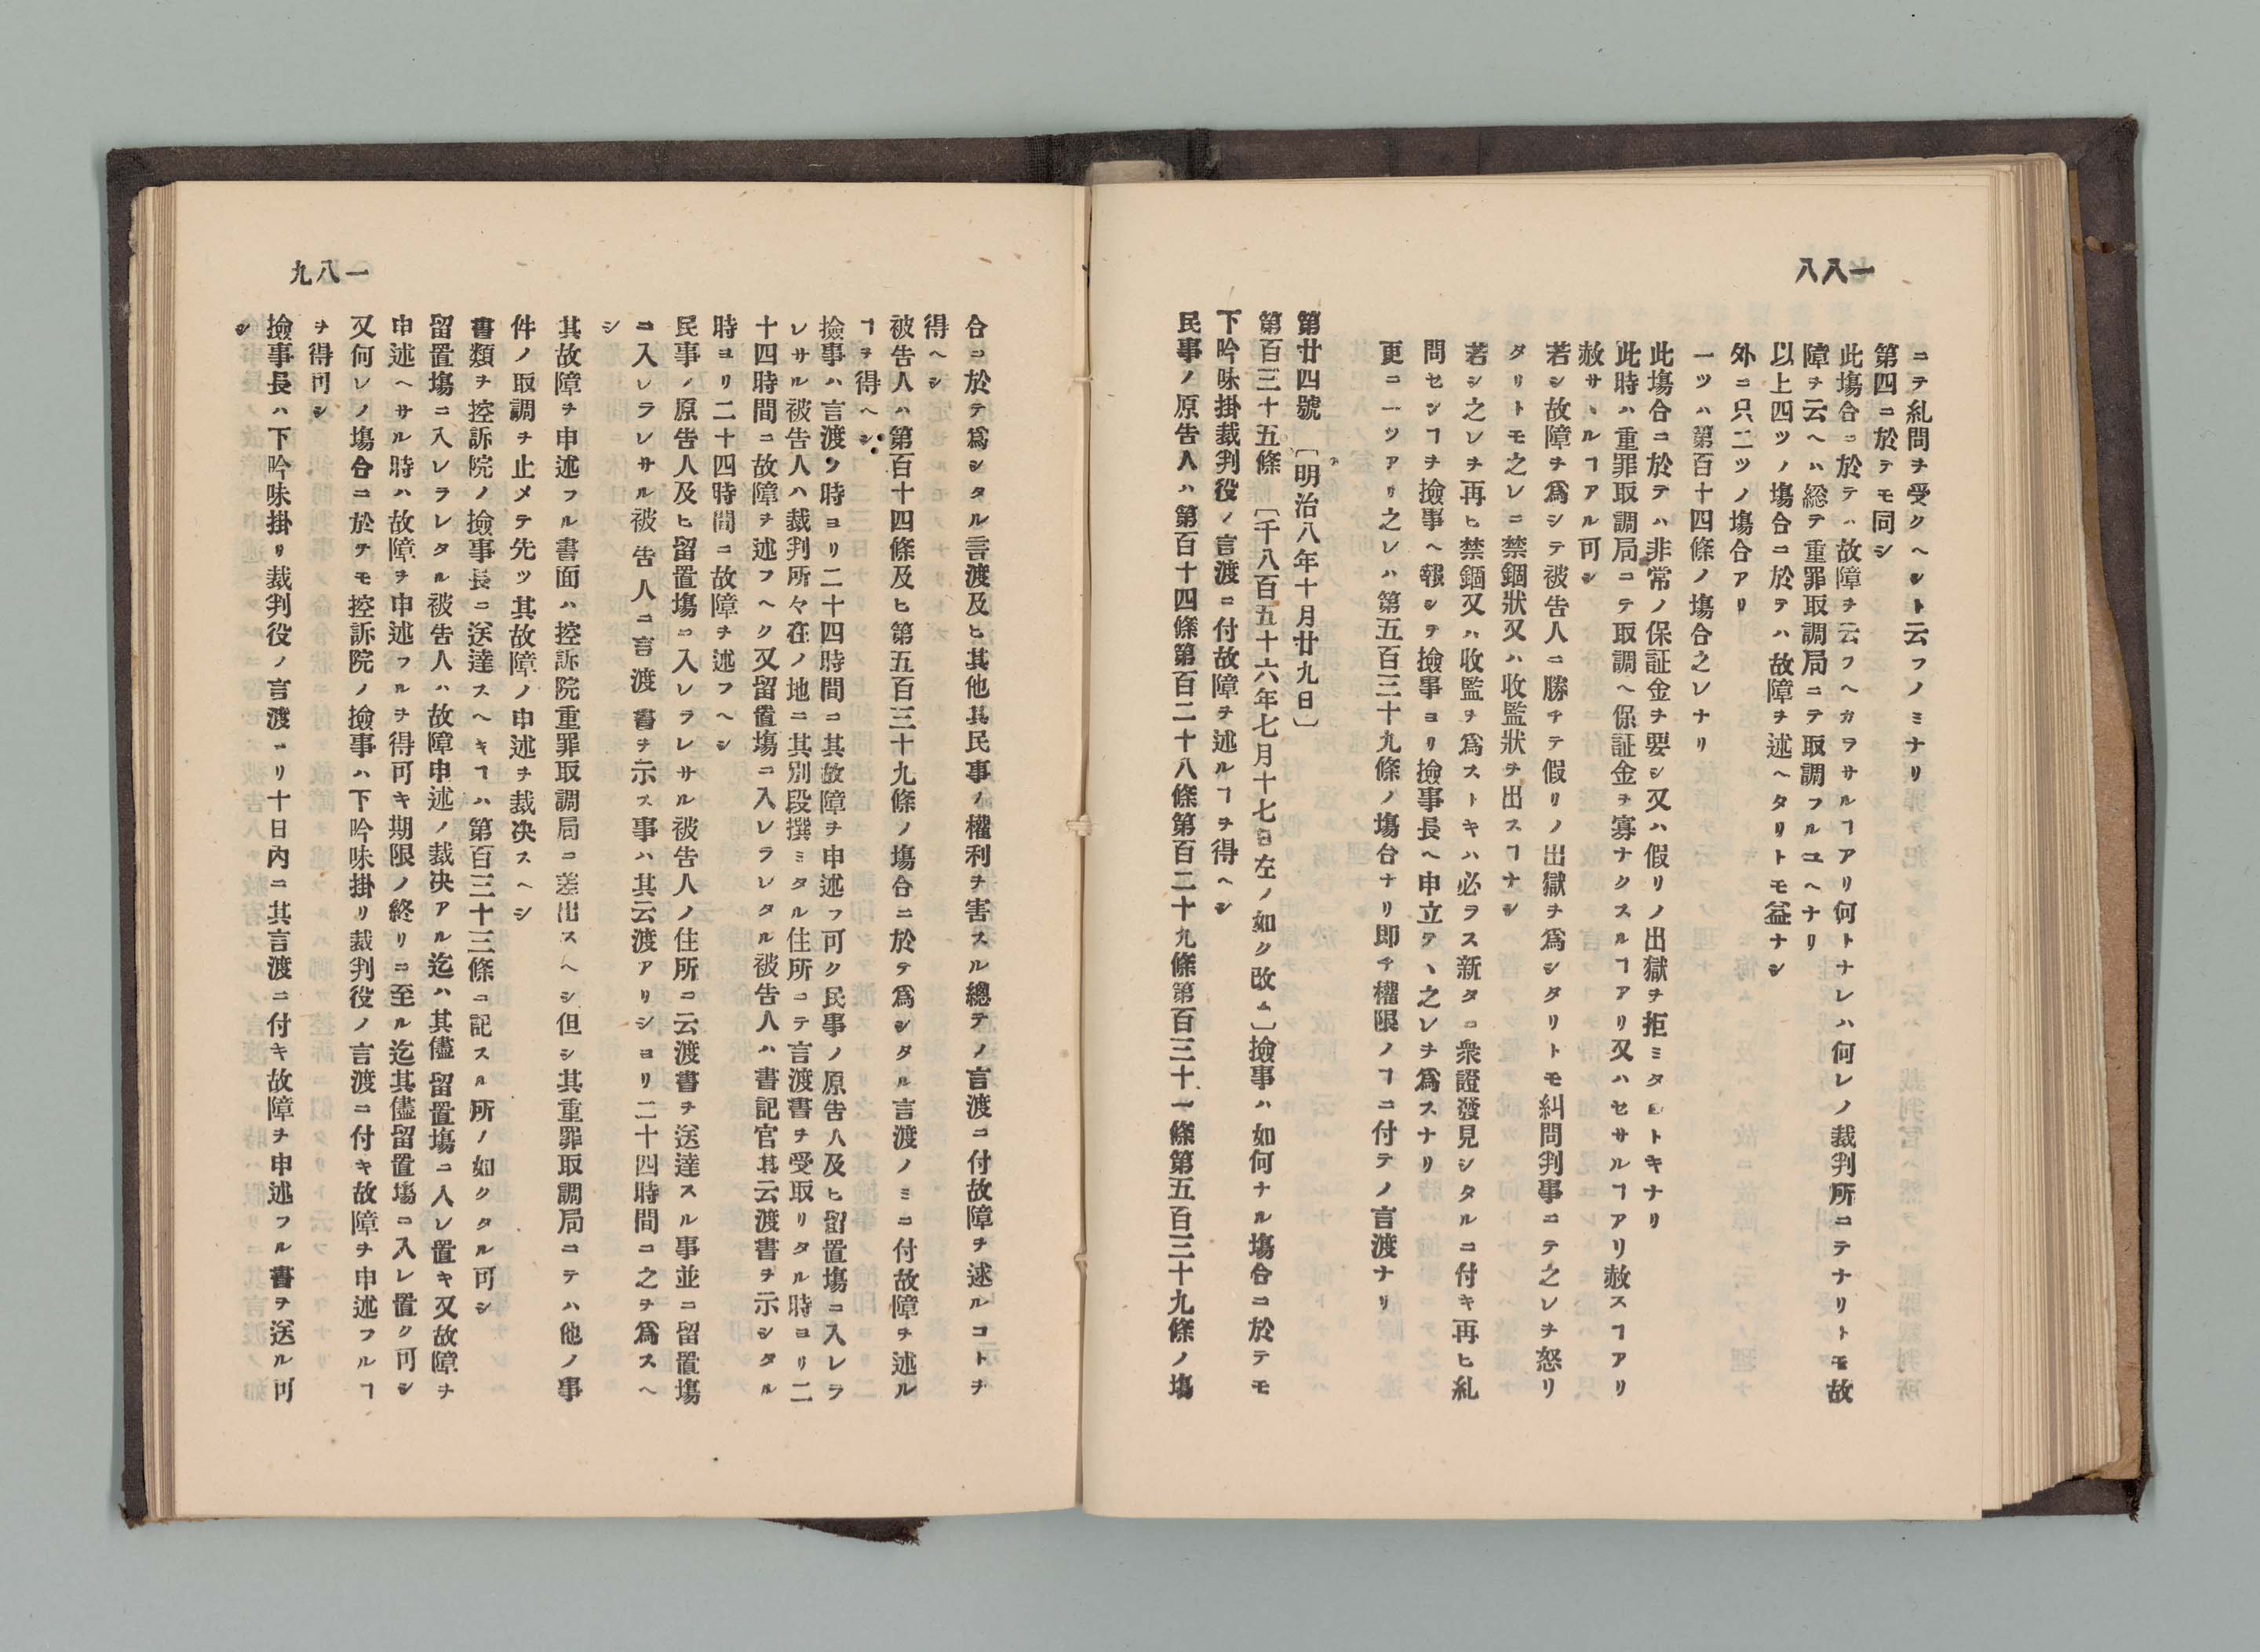 一八八
ニテ糺問ヲ受クヘシト云フノミナリ
第四ニ於テモ同シ
此塲合ニ於テハ故障ヲ云フヘカラサルヿアリ何トナレハ何レノ裁判所ニテナリトモ故
障ヲ云ヘハ総テ重罪取調局ニテ取調フルユヘナリ
以上四ツノ塲合ニ於テハ故障ヲ述ヘタリトモ益ナシ
外ニ只二ツノ塲合アリ
一ツハ第百十四條ノ塲合之レナリ
此塲合ニ於テハ非常ノ保証金ヲ要シ又ハ假リノ出獄ヲ拒ミタルトキナリ
此時ハ重罪取調局ニテ取調ヘ保証金ヲ寡ナクスルヿアリ又ハセサルヿアリ赦スヿアリ
赦サヽルヿアル可シ
若シ故障ヲ爲シテ被告人ニ勝チテ假リノ出獄ヲ爲シタリトモ糾問判事ニテ之レヲ怒リ
タリトモ之レニ禁錮狀又ハ收監狀ヲ出スヿナシ
若シ之レヲ再ヒ禁錮又ハ收監ヲ爲ストキハ必ラス新タニ衆證發見シタルニ付キ再ヒ糺
問セシヿヲ撿事ヘ報シテ撿事ヨリ撿事長ヘ申立テヽ之レヲ爲スナリ
更ニ一ツアリ之レハ第五百三十九條ノ塲台ナリ即チ權限ノヿニ付テノ言渡ナリ
第廿四號 〔明治八年十月廿九日〕
第百三十五條 〔千八百五十六年七月十七日左ノ如ク改ム〕撿事ハ如何ナル塲合ニ於テモ
下吟味掛裁判役ノ言渡ニ付故障ヲ述ルヿヲ得ヘシ
民事ノ原告人ハ第百十四條第百二十八條第百二十九條第百三十一條第五百三十九條ノ塲
一八九
合ニ於テ爲シタル言渡及ヒ其他其民事ノ權利ヲ害スル總テノ言渡ニ付故障ヲ述ルコトヲ
得ヘシ
被告人ハ第百十四條及ヒ第五百三十九條ノ塲合ニ於テ爲シタル言渡ノミニ付故障ヲ述ル
ヿヲ得ヘシ
撿事ハ言渡ノ時ヨリ二十四時間ニ其故障ヲ申述フ可ク民事ノ原告人及ヒ留置塲ニ入レラ
レサル被告人ハ裁判所々在ノ地ニ其別段撰ミタル住所ニテ言渡書ヲ受取リタル時ヨリ二
十四時間ニ故障ヲ述フヘク又留置塲ニ入レラレタル被告人ハ書記官其云渡書ヲ示シタル
時ヨリ二十四時間ニ故障ヲ述フヘシ
民事ノ原告人及ヒ留置塲ニ入レラレサル被告人ノ住所ニ云渡書ヲ送達スル事並ニ留置塲
ニ入レラレサル被告人ニ言渡書ヲ示ス事ハ其云渡アリシヨリ二十四時間ニ之ヲ爲スヘ
シ
其故障ヲ申述フル書面ハ控訴院重罪取調局ニ差出スヘシ但シ其重罪取調局ニテハ他ノ事
件ノ取調ヲ止メテ先ツ其故障ノ申述ヲ裁决スヘシ
書類ヲ控訴院ノ撿事長ニ送達スヘキヿハ第百三十三條ニ記スル所ノ如クタル可シ
留置塲ニ入レラレタル被告人ハ故障申述ノ裁决アル迄ハ其儘留置塲ニ入レ置キ又故障ヲ
申述ヘサル時ハ故障ヲ申述フルヲ得可キ期限ノ終リニ至ル迄其儘留置塲ニ入レ置ク可シ
又何レノ塲合ニ於テモ控訴院ノ撿事ハ下吟味掛リ裁判役ノ言渡ニ付キ故障ヲ申述フルヿ
ヲ得可シ
撿事長ハ下吟味掛リ裁判役ノ言渡ヨリ十日內ニ其言渡ニ付キ故障ヲ申述フル書ヲ送ル可
シ